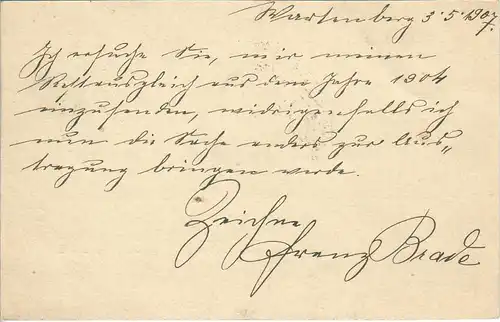 Wartenberg 3.5.1907.
Ich ersuche Sie, mir meinen
Restausgleich aus dem Jahre 1904
einzusenden, widrigenfalls ich
nun die Sache anders zur Aus„
tragung bringen werde.
Zeichne
Franz Brade